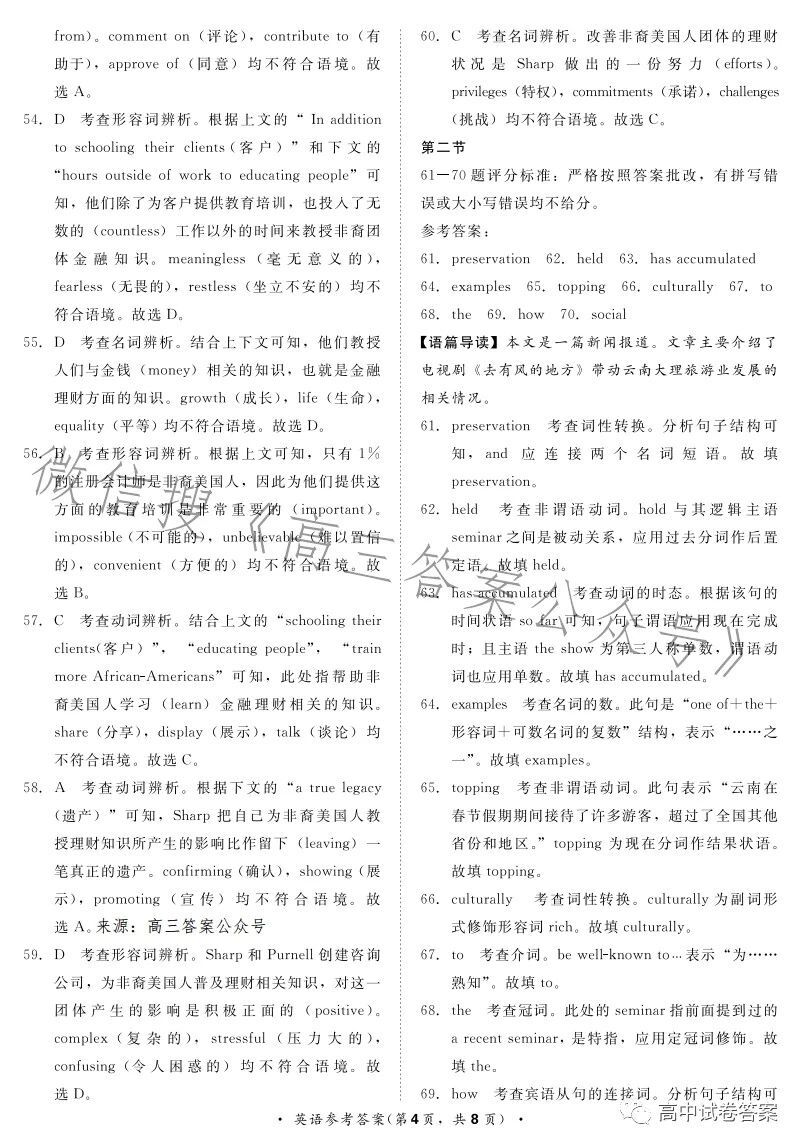 from）。comment on（评论），contribute to（有
助于），approve of（同意）均不符合语境。故
选 A。
54．D　考查形容词辨析。根据上文的“ In addition
to schooling their clients（客户）”和下文的
“hours outside of work to educating people”可
知，他们除了为客户提供教育培训，也投入了无
数的（countless）工作以外的时间来教授非裔团
体金融知识。meaningless（毫无意义的），
fearless（无畏的），restless（坐立不安的）均不
符合语境。故选 D。
55．D　考查名词辨析。结合上下文可知，他们教授
人们与金钱（money）相关的知识，也就是金融
理财方面的知识。growth（成长），life（生命），
equality（平等）均不符合语境。故选 D。
56．B　考查形容词辨析。根据上文可知，只有 1%
的注册会计师是非裔美国人，因此为他们提供这
方面的教育培训是非常重要的（important）。
impossible（不可能的），unbelievable（难以置信
的），convenient（方便的）均不符合语境。故
选 B。
57．C　考查动词辨析。结合上文的“schooling their
clients(客户）”，“educating people”，“train
more African-Americans”可知，此处指帮助非
裔美国人学习（learn）金融理财相关的知识。
share（分享），display（展示），talk（谈论）均
不符合语境。故选 C。
58．A　考查动词辨析。根据下文的“a true legacy
(遗产）”可知，Sharp 把自己为非裔美国人教
授理财知识所产生的影响比作留下（leaving）一
笔真正的遗产。confirming(确认），showing（展
示），promoting（宣传）均不符合语境。故
选 A。来源：高三答案公众号
59．D　考查形容词辨析。Sharp 和 Purnell 创建咨询
公司，为非裔美国人普及理财相关知识，对这一
团体产生的影响是积极正面的（positive）。
complex（复杂的），stressful（压力大的），
confusing（令人困惑的）均不符合语境。故
选 D。
60．C　考查名词辨析。改善非裔美国人团体的理财
状况是 Sharp 做出的一份努力（efforts）。
privileges（特权），commitments（承诺），challenges
（挑战）均不符合语境。故选 C。
第二节
61—70 题评分标准：严格按照答案批改，有拼写错
误或大小写错误均不给分。
参考答案：
61．preservation　62．held　63．has accumulated
64．examples　65．topping　66．culturally　67．to
68．the　69．how　70．social
【语篇导读】本文是一篇新闻报道。文章主要介绍了
电视剧《去有风的地方》带动云南大理旅游业发展的
相关情况。
61．preservation　考查词性转换。分析句子结构可
知，and 应连接两个名词短语。故填
preservation。
62．held　考查非谓语动词。hold 与其逻辑主语
seminar 之间是被动关系，应用过去分词作后置
定语。故填 held。
63．has accumulated　考查动词的时态。根据该句的
时间状语 so far 可知，句子谓语应用现在完成
时；且主语 the show 为第三人称单数，谓语动
词也应用单数。故填 has accumulated。
64．examples　考查名词的数。此句是“one of＋the＋
形容词＋可数名词的复数”结构，表示“……之
一”。故填 examples。
65．topping　考查非谓语动词。此句表示“云南在
春节假期期间接待了许多游客，超过了全国其他
省份和地区。”topping 为现在分词作结果状语。
故填 topping。
66．culturally　考查词性转换。culturally 为副词形
式修饰形容词 rich。故填 culturally。
67．to　考查介词。be well-known to…表示“为……
熟知”。故填 to。
68．the　考查冠词。此处的 seminar 指前面提到过的
a recent seminar，是特指，应用定冠词修饰。故
填 the。
69．how　考查宾语从句的连接词。分析句子结构可
·英语参考答案(第 4 页，共 8 页）·
微信搜《高三答案公众号》
高中试卷答案